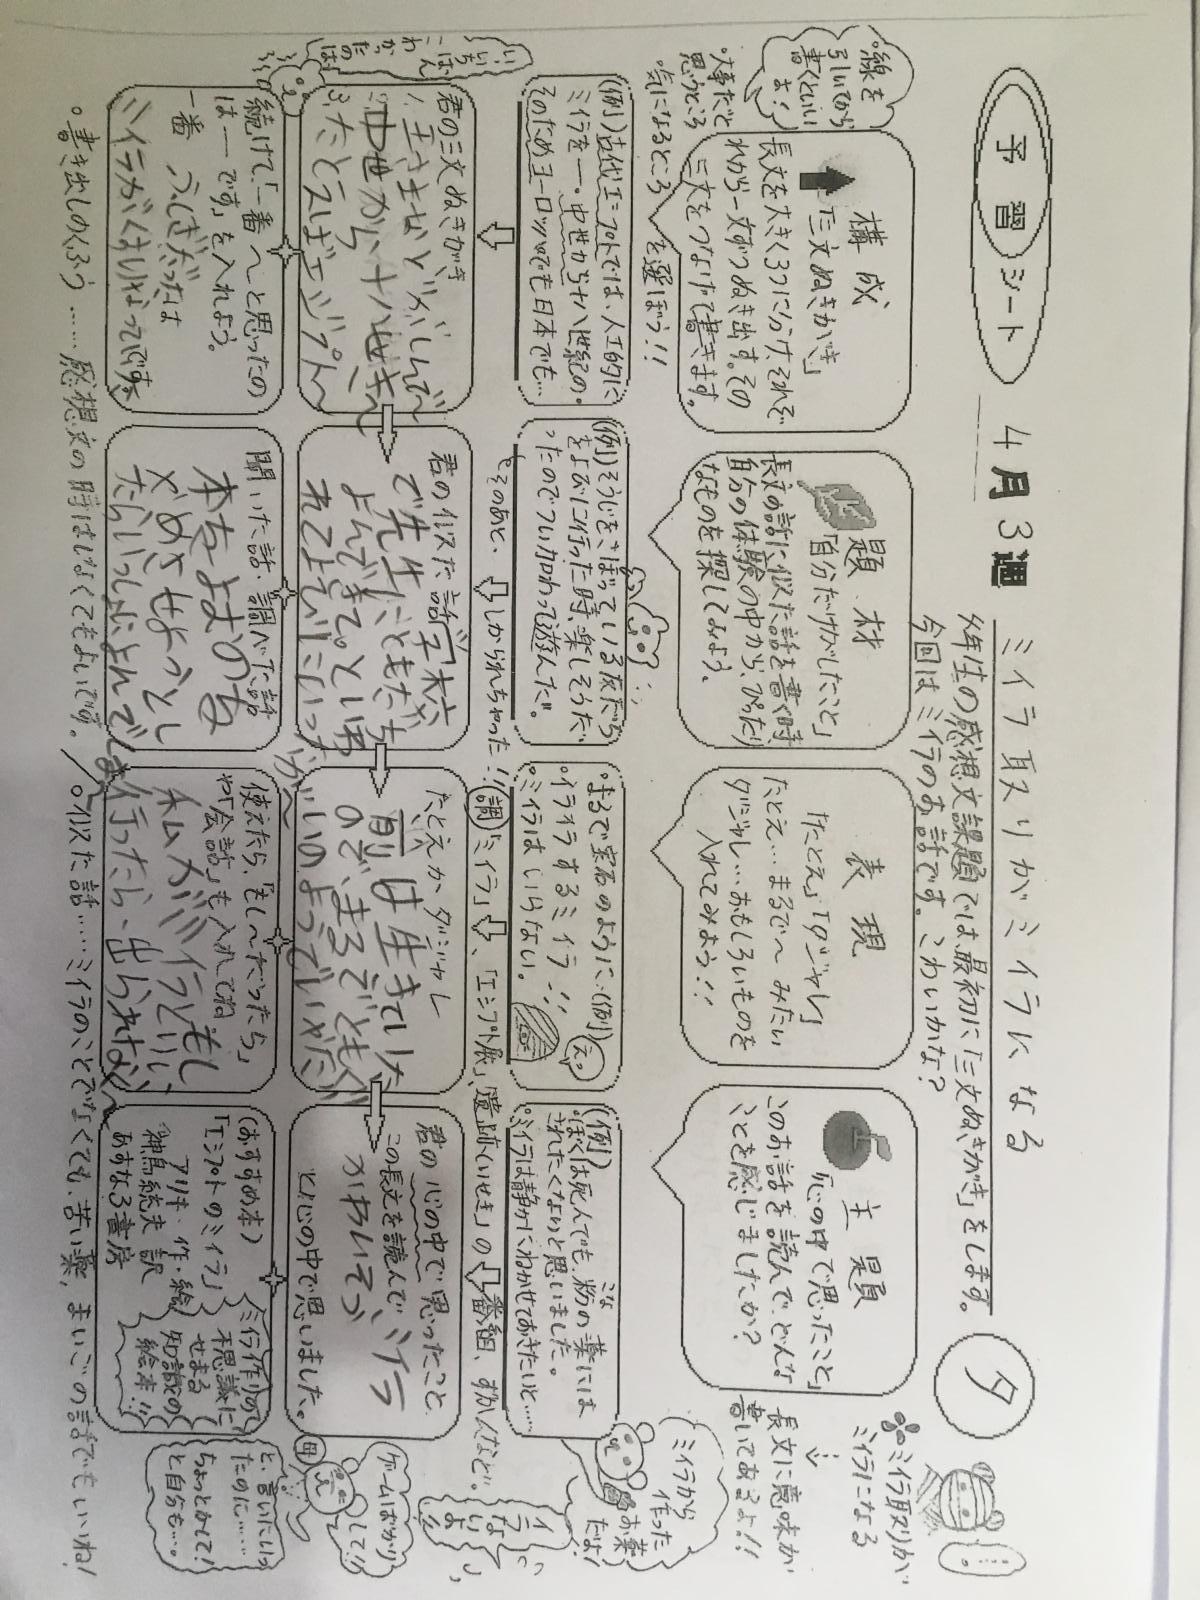 予習シート
4月3週
ミイラ取りがミイラになる
タ
今年生の感想文課題では最初に「三文ぬきがき」をします。
今回はミイラのお話です。こわいかな?
ミイラ取りが
ミイラになる
線を
引いてから
書くといい
よ!
大事だと
思うところ
気になるところ
を選ぼう!!
構成
「三文ぬきがき」
長文を大きく3つに分け、それぞ
れから一文ずつぬき出す。その
三文をつなげて書きます。
題材
「自分だけがしたこと」
長文の話に似た話を書く時
自分の体験の中から、ぴったり
なものを探してみよう。
表現
「たとえ」「ダジャレ」
たとえ…まるで〜みたい
ダジャレ…おもしろいものを
入れてみよう!!
主題
「心の中で思ったこと」
このお話を読んで、どんな
ことを感じましたか?
長文に意味が
書いてあるよ!!
(例)古代エジプトでは、人工的に
ミイラを…。中世から十八世紀の…
そのためヨーロッパでも日本でも…
(例)そうじをさぼっている友だち
をよびに行った時、楽しそうだ
ったのでつい加わって遊んだ。
そのあと、しかられちゃった…!!
まるで宝石のように…(例)
イライラするミイラ…!!
ミイラはいらない。
え。
(例)
ぼくは死んでも、粉の薬には
こな
されたくないと思いました。
ミイラは静かにねかせておきたいと……
ミイラから
作った
お薬
だよ!
調「ミイラ」、「エジプト展」、遺跡(いせき)の番組、ずかんなど。
君の三文ぬきがき
1、王さまなどがしんで〜
2、中世から十八世き〜
3、たとえばエジプト〜
君の似た話 学校
で先生に、ともだち
よんできて。といわ
れてよびにいった
が〜
たとえかダジャレ
前は生きていた
ので、まるでともだ
ちのようでいやだ
君の心の中で思ったこと
この長文を読んで、ミイラ
かわいそう
と心の中で思いました。
いちばん
こわ
かっ
たの
は
続けて、「一番〜と思ったの
は――です」を入れよう。
一番 ふしぎだったは
ミイラがくすりなってです。
聞いた話、調べた話
本をよむのを
やめさせようとし
たらいっしょによんでしま
使えたら、「もし〜だったら」
や「会話」も入れてね
私がミイラとりにもし
行ったら、出られない〜
(おすすめ本)
「エジプトのミイラ」
アリキ・作・絵
神鳥統夫 訳
あすなろ書房
ミイラ作りの
不思議に
せまる
知識の
絵本!!
ゲームばかり
して!!
母
と、言いたいっ
たのに……
ちょっとかして!
と自分も…。
書き出しのくふう……感想文の時はしなくてもよいです。
似た話……ミイラのことでなくても、苦い薬、まいごの話でもいいね!